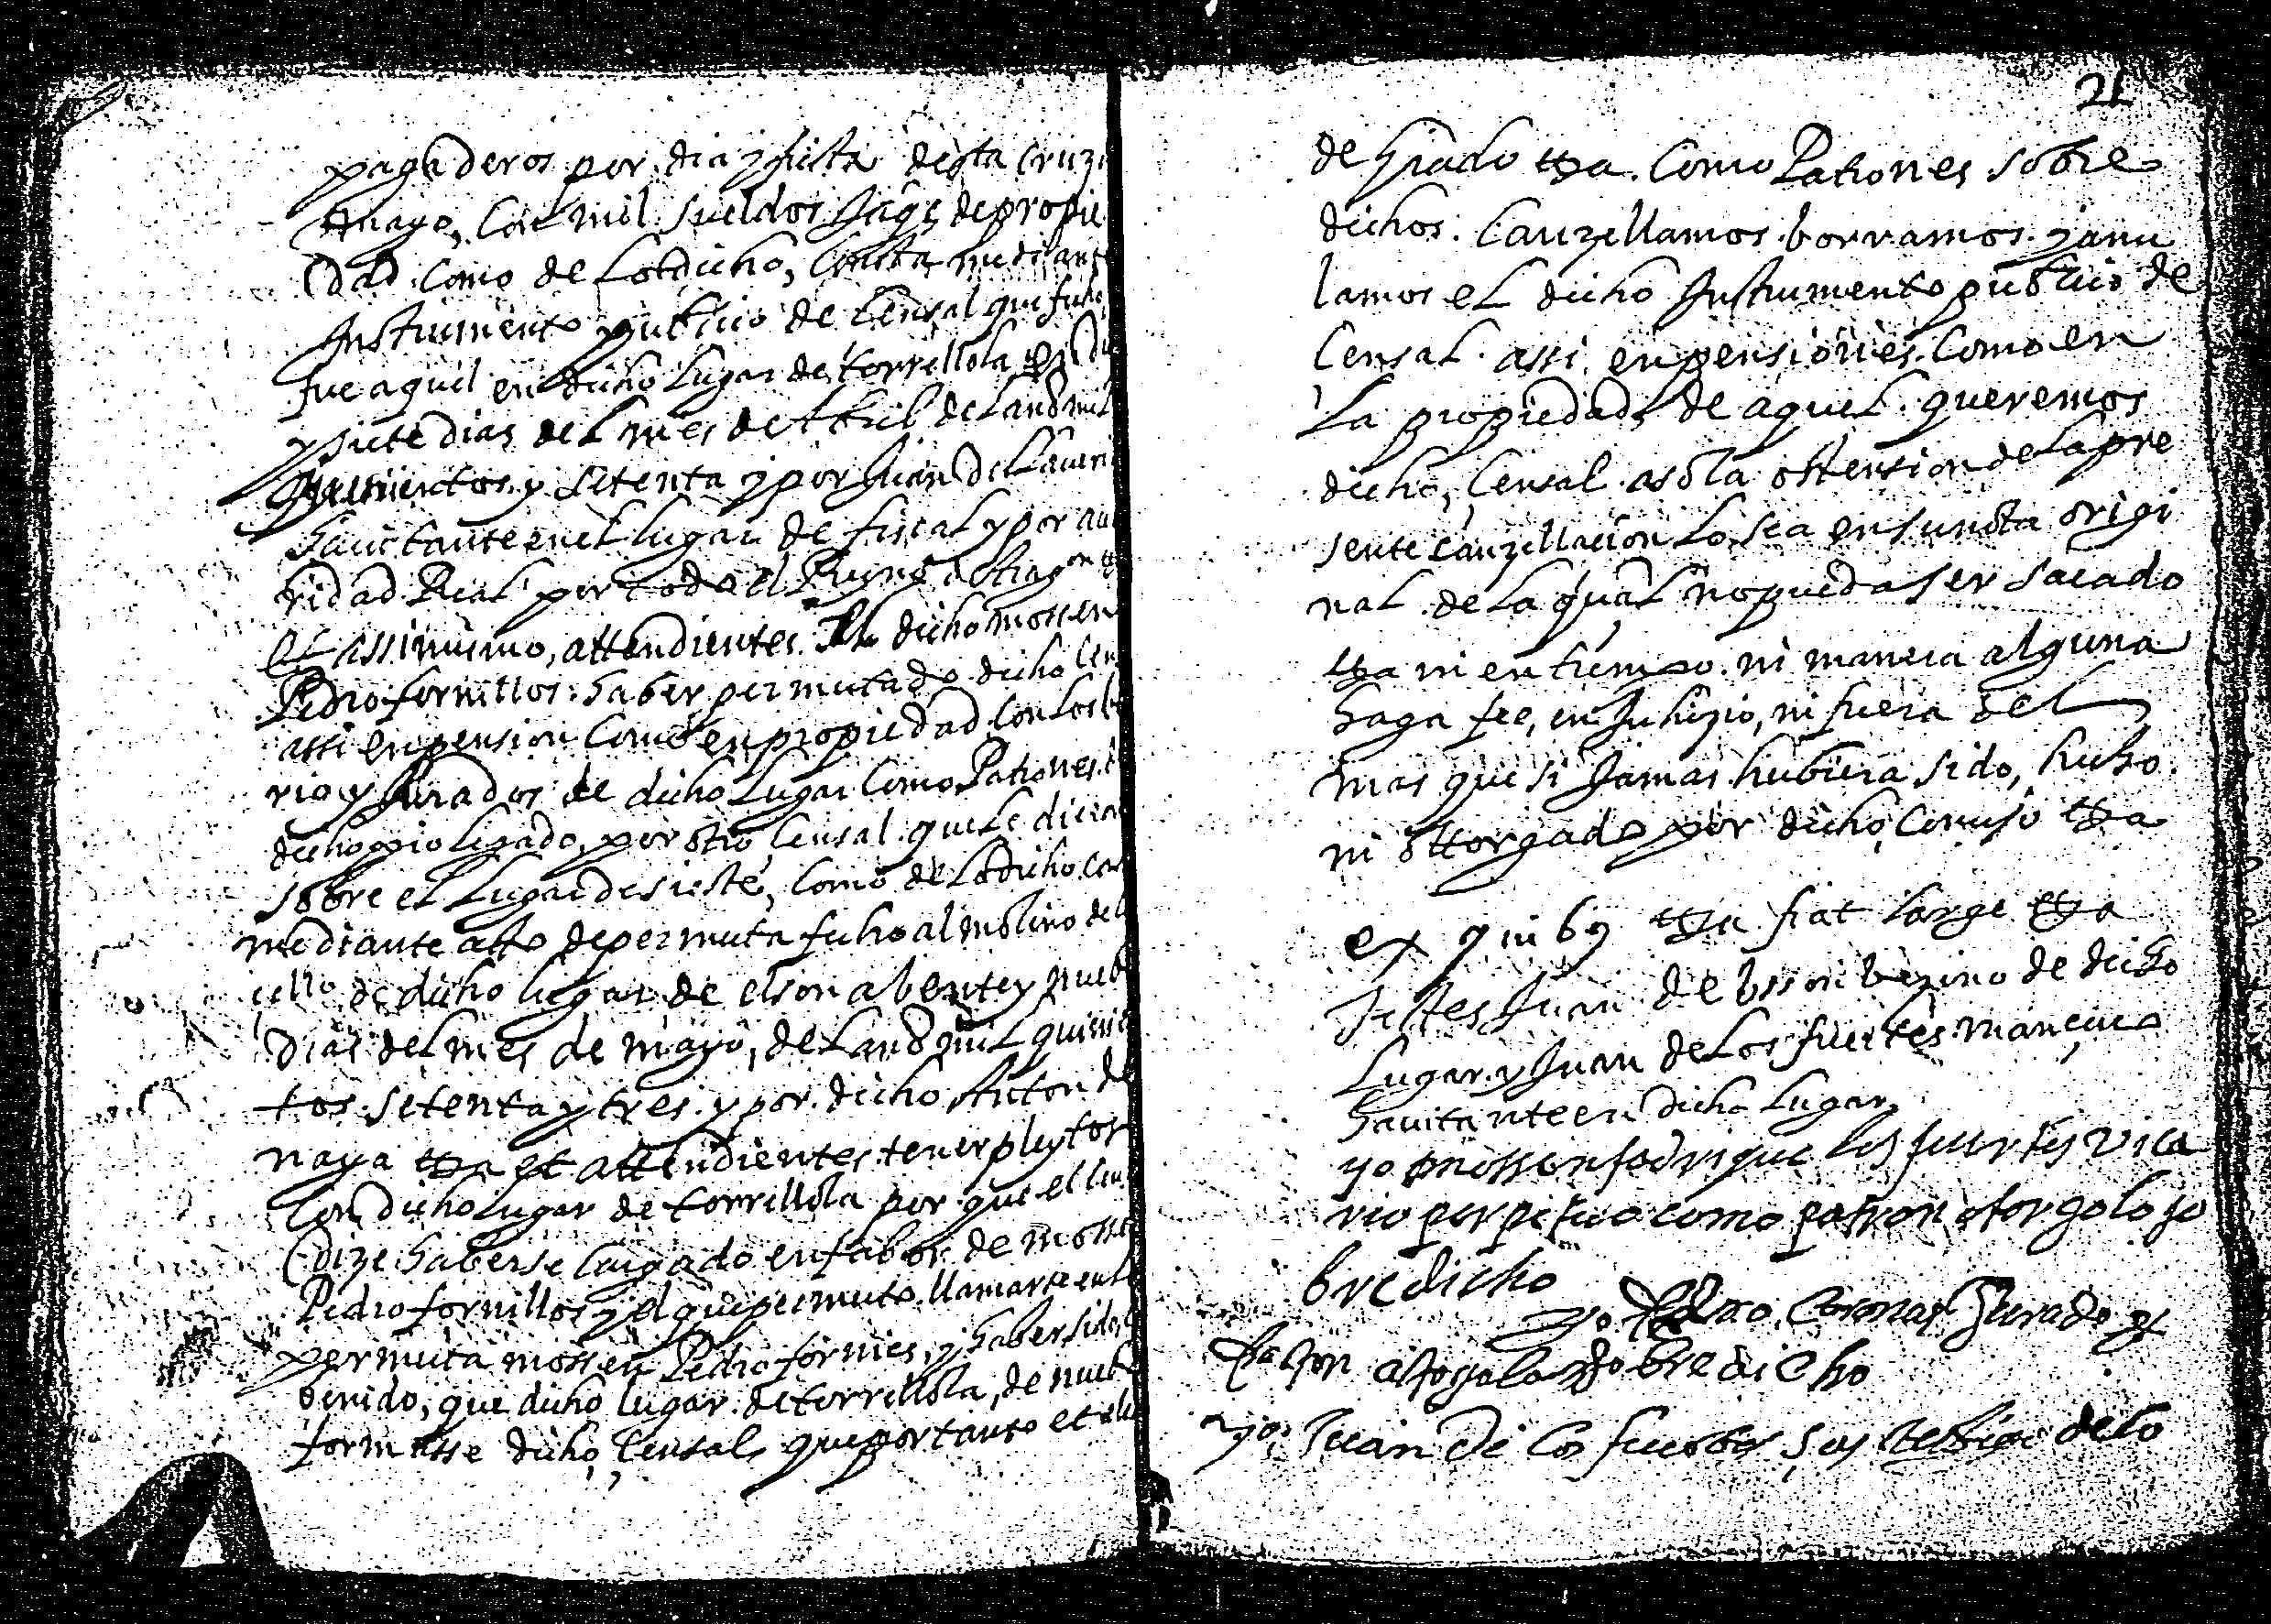 pagaderos por dia y fiesta desta cruz
mayo, Con mil sueldos Jaqs de propie
dad. Como de lo dicho, Consta mediante
Instrumento publico de Censal que fecho
fue aquel en dicho Lugar de torrillola
y siete dias del mes de Abril del anno mil
quinientos y setenta y por Juan de
havitante en el lugar de fiscal y por au
ridad Real por todo el Reyno de Aragon
et assimismo, attendientes. El dicho mossen
Pedro fornillos: haber permutado dicho Cen
assi en pension Como en propiedad Con los
rio y Jurados de dicho Lugar Como Patrones
dicho pio legado, por otro Censal que le dieron
sobre el Lugar de sieste, Como de lo dicho
mediante acto de permuta fecho al molino del
de dicho lugar de elson a bente y nueb
dias del mes de mayo, del anno mil quinie
tos setenta y tres y por dicho Anton de
naya etza et attendientes tener pleytos
Con dicho Lugar de torrillola por que el
dize haberse Cargado en fabor de mosse
Pedro fornillos y el que permuto llamarse en
permuta mossen Pedro fornies, y haber sido
benido, que dicho lugar de torrillola, de nueb
formasse dicho Censal, que por tanto et
21
de Grado etza. Como Patrones sobre
dichos. Canzellamos. borramos. y anu
lamos el dicho Instrumento publico de
Censal. assi en pensiones. Como en
La propiedad, de aquel. queremos
dicho, Censal. a sola ostension de la pre
sente Canzellacion Lo sea en su nota origi
nal. de la qual no pueda ser sacado
etza ni en tiempo. ni manera alguna
haga fee, en Juhizio, ni fuera del
mas que si Jamas. hubiera sido, hecho.
ni ottorgado por dicho Consejo etza
ex quibus etza fiat large etza
Testes Juan de bisori bezino de dicho
Lugar. y Juan de Los fuertes mancebo
havitante en dicho Lugar
yo mossen fadrique los fuertes vica
rio perpetuo como patron otorgo lo so
bredicho
yo Pedro Comas Jurado y
Patron atorgo lo sobredicho
yo Juan de los fuertes soy testigo de lo